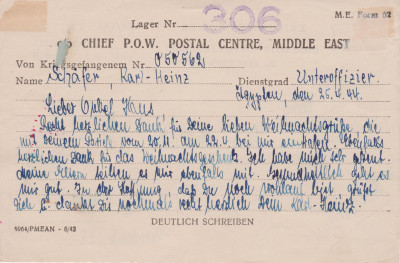 M.E. Form 62
Lager Nr. 306
c/o CHIEF P.O.W. POSTAL CENTRE, MIDDLE EAST
Von Kriegsgefangenem Nr. 050562
Name Schäfer, Karl-Heinz Dienstgrad Unteroffizier.
Ägypten, den 25.4.44.
Lieber Onkel Hans
Recht herzlichen Dank für Deine lieben Weihnachtsgrüße, die
mit Deinem Brief vom 20.11. am 22.4. bei mir eintrafen. Ebenfalls
herzlichen Dank für das Weihnachtsgeschenk. Ich habe mich sehr gefreut.
Meine Eltern teilten es mir ebenfalls mit. Gesundheitlich geht es
mir gut. In der Hoffnung, daß Du noch wohlauf bist, grüßt
Dich & dankt Dir nochmals recht herzlich Dein Karl-Heinz.
DEUTLICH SCHREIBEN
4964/PMEAN - 6/43